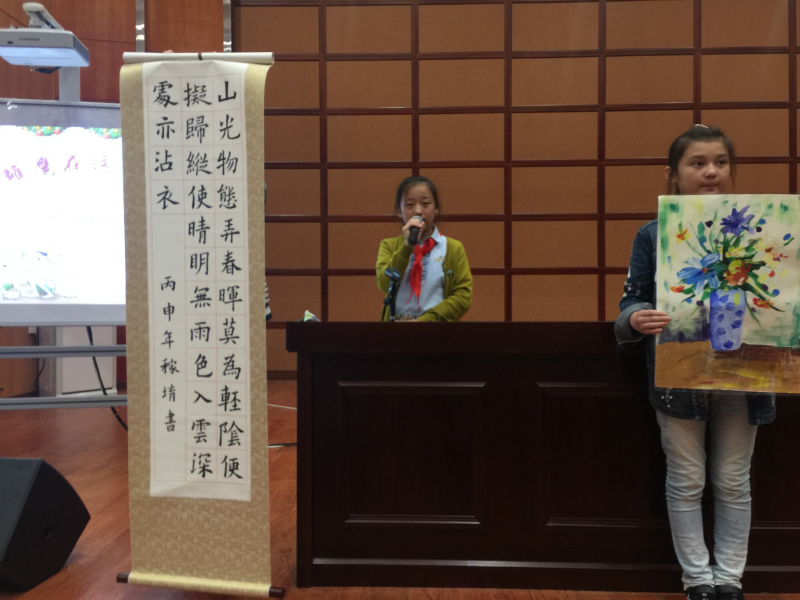 山光物態弄春暉莫為輕陰便
擬歸縱使晴明無雨色入雲深
處亦沾衣
丙申年稼堉書